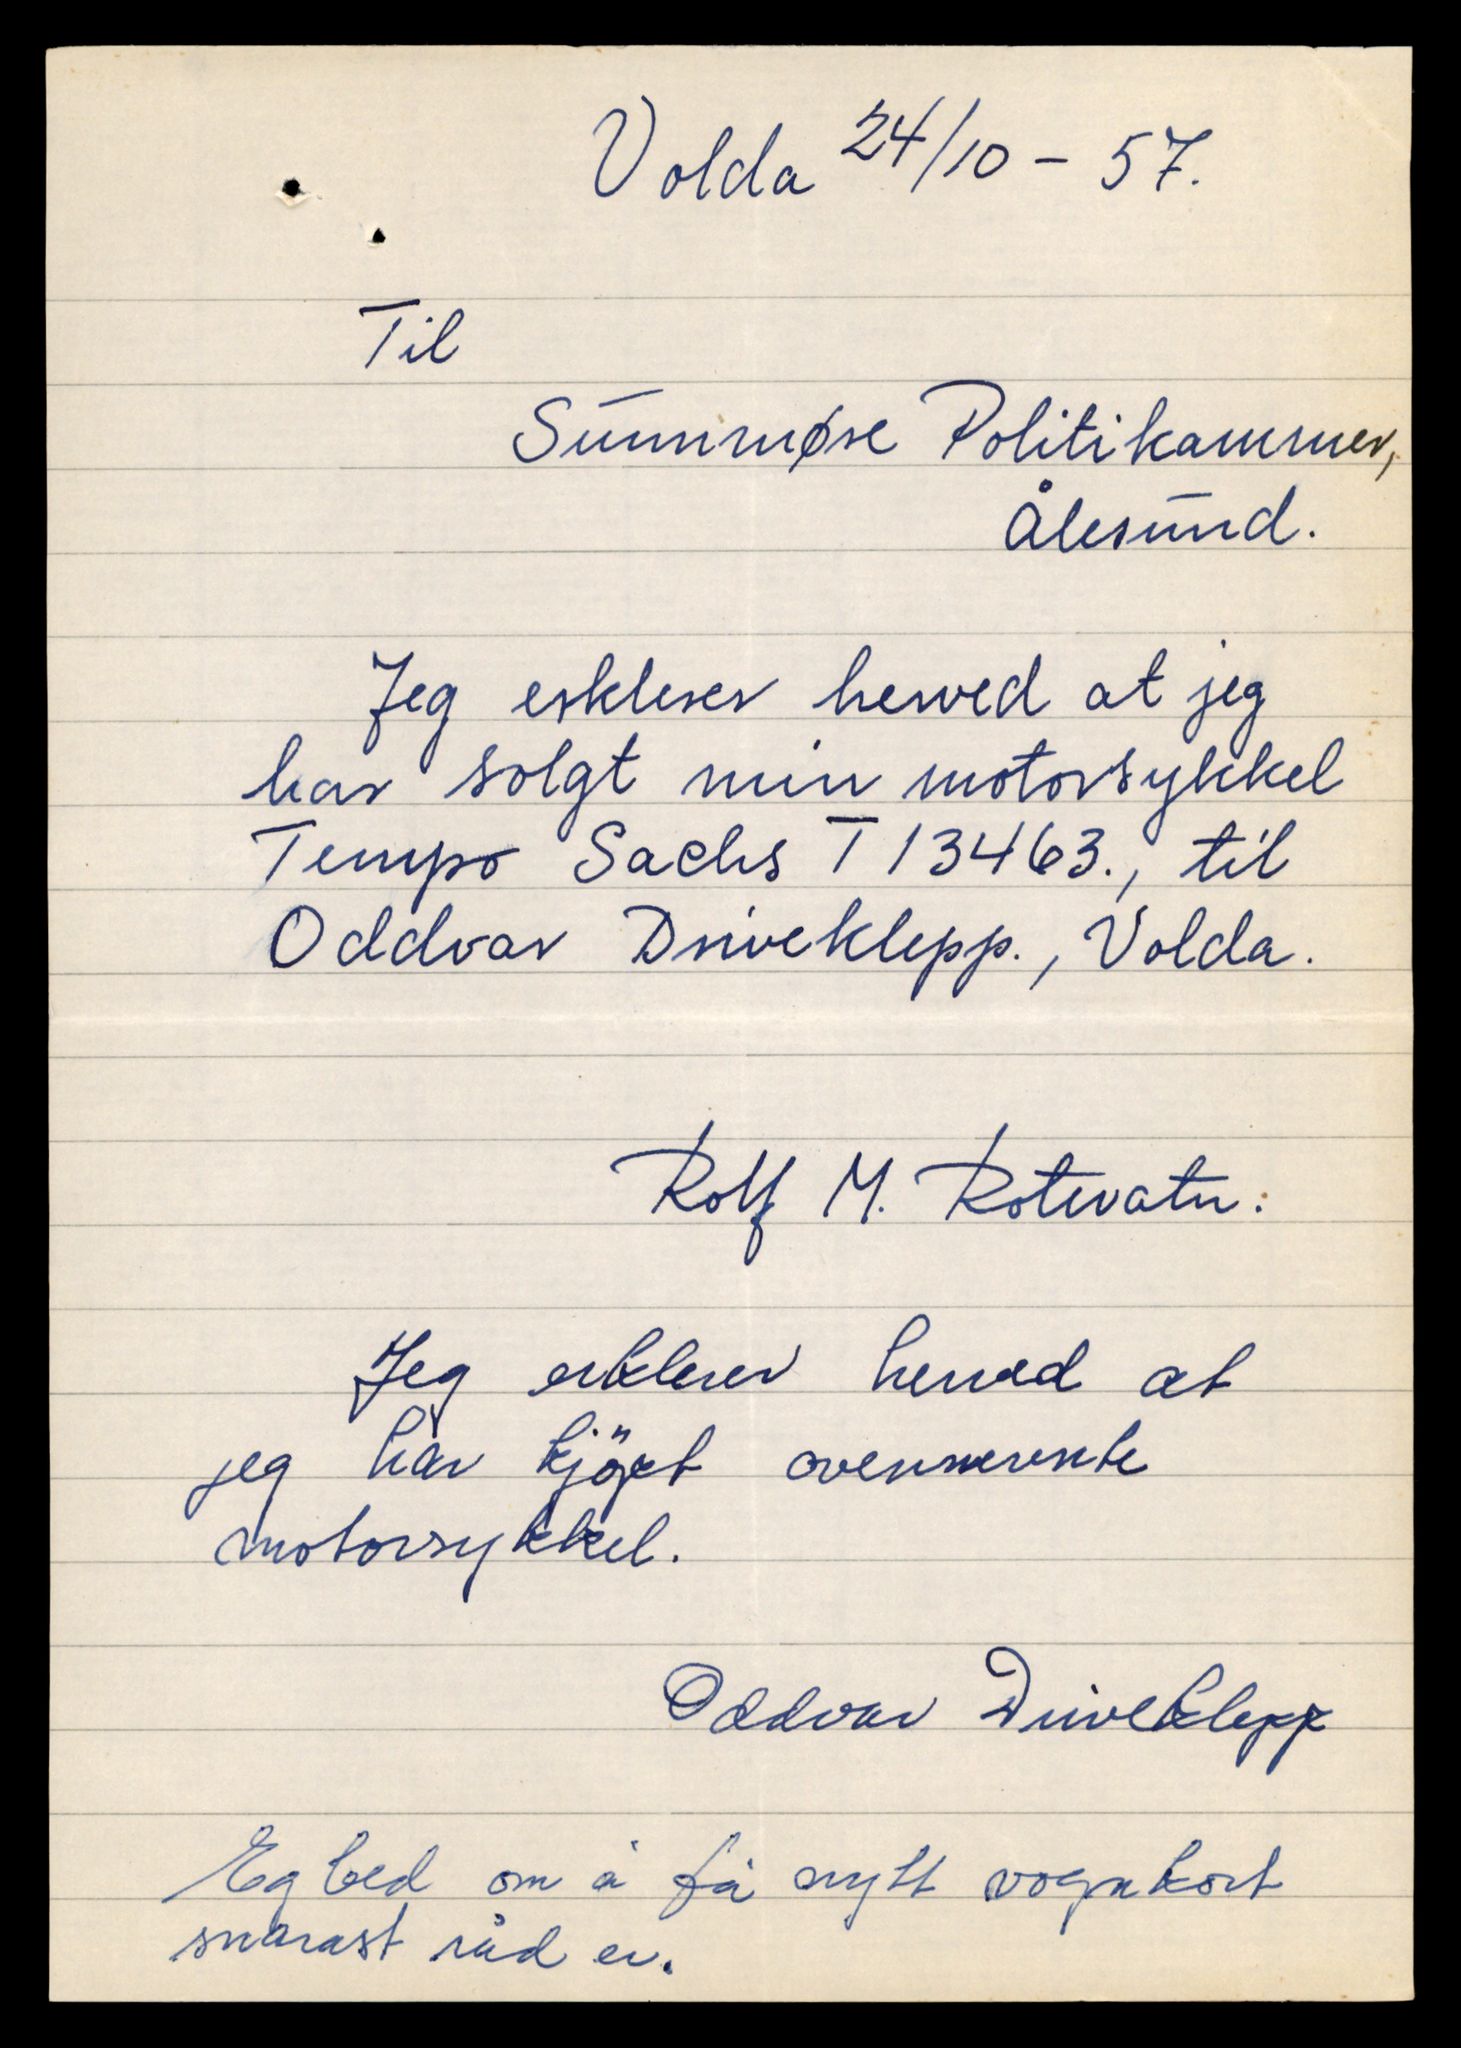 Volda 24/10 - 57.
Til
Sunnmøre Politikammer,
Ålesund.
Jeg erklerer herved at jeg
har solgt min motorsykkel
Tempo Sachs T 13463., til
Oddvar Driveklepp., Volda.
Rolf M. Rotevatn.
Jeg erklerer herved at
jeg har kjöpt ovennevnte
motorsykkel.
Oddvar Driveklepp
Eg bed om å få nytt vognkort
snarast råd er.